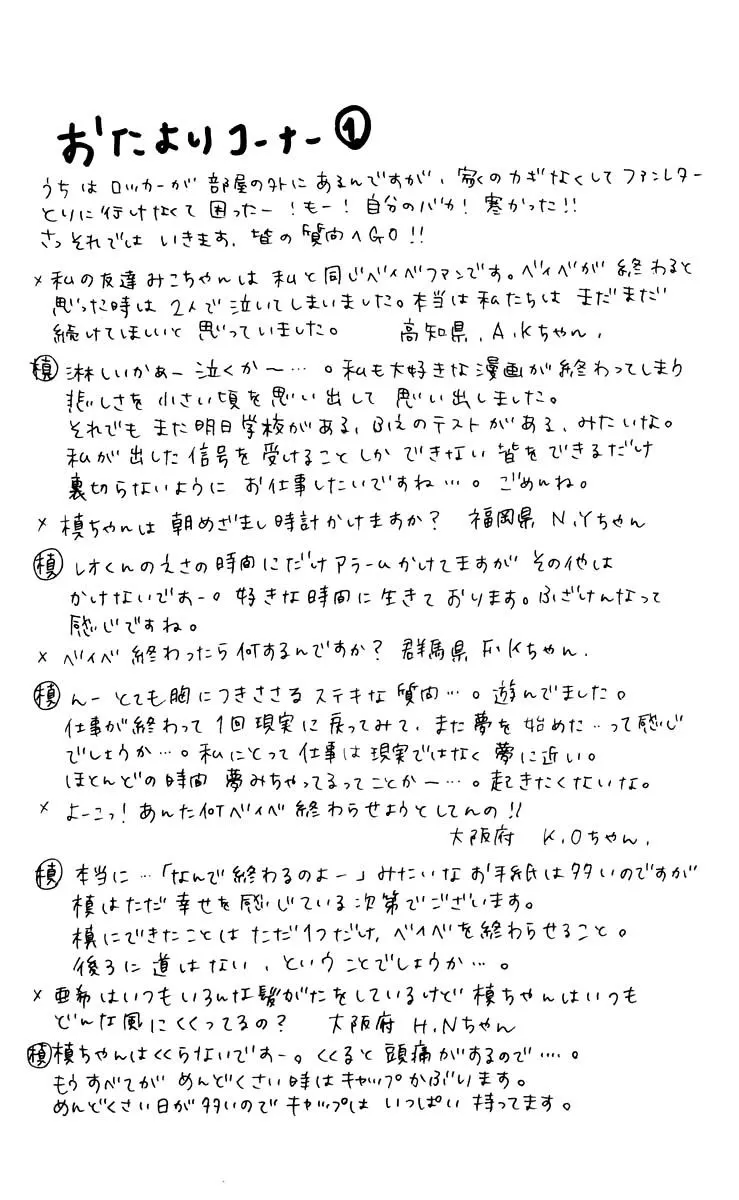 おたよりコーナー①
うちはロッカーが部屋の外にあるんですが、家くのカギなくしてファンレター
とりに行けなくて困ったー!もー!自分のバカ!寒かった!!
さっそれではいきます、皆の質問へGO!!
×私の友達みこちゃんは私と同じベイベファンです。ベイベが終わると
思った時は2人で泣いてしまいました。本当は私たちはまだまだ
続けてほしいと思っていました。 高知県、A.Kちゃん、
槙 淋しいかぁー泣くか〜…。私も大好きな漫画が終わってしまり
悲しさを小さい頃を思い出して思い出しました。
それでもまた明日学校がある、ふえのテストがある、みたいな。
私が出した信号を受けることしかできない皆をできるだけ
裏切らないようにお仕事したいですね…。ごめんね。
×槙ちゃんは朝めざまし時計かけますか? 福岡県 N.Yちゃん
槙 レオくんのえさの時間にだけアラームかけてますがその他は
かけないですぉー。好きな時間に生きております。ふざけんなって
感じですね。
×ベイベ終わったら何するんですか? 群馬県 F.Kちゃん.
槙 んーとても胸につきささるステキな質問…。遊んでました。
仕事が終わって1回現実に戻ってみて、また夢を始めた‥って感じ
でしょうか…。私にとって仕事は現実ではなく夢に近い。
ほとんどの時間夢みちゃってるってことか〜…。起きたくないな。
×よーこっ!あんた何ベイベ終わらせようとしてんの!!
大阪府 K.Oちゃん.
槙 本当に…「なんで終わるのよー」みたいなお手紙は多いのですが
槙はただ幸せを感じている次第でございます。
槙にできたことはただ1つだけ、ベイベを終わらせること。
後ろに道はない、ということでしょうか…。
×亜希はいつもいろんな髪がたをしているけど槙ちゃんはいつも
どんな風にくくってるの? 大阪府 H.Nちゃん
槙 槙ちゃんはくくらないですぉー。くくると頭痛がするので‥‥。
もうすべてがめんどくさい時はキャップかぶります。
めんどくさい日が多いのでキャップはいっぱい持ってます。